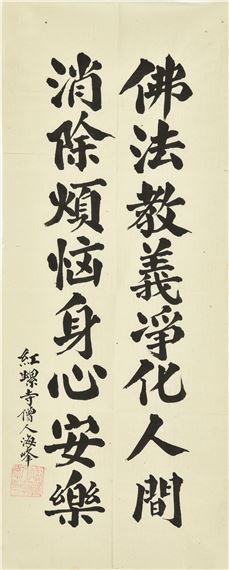 佛法教義淨化人間
消除煩恼身心安樂
紅螺寺僧人海峰